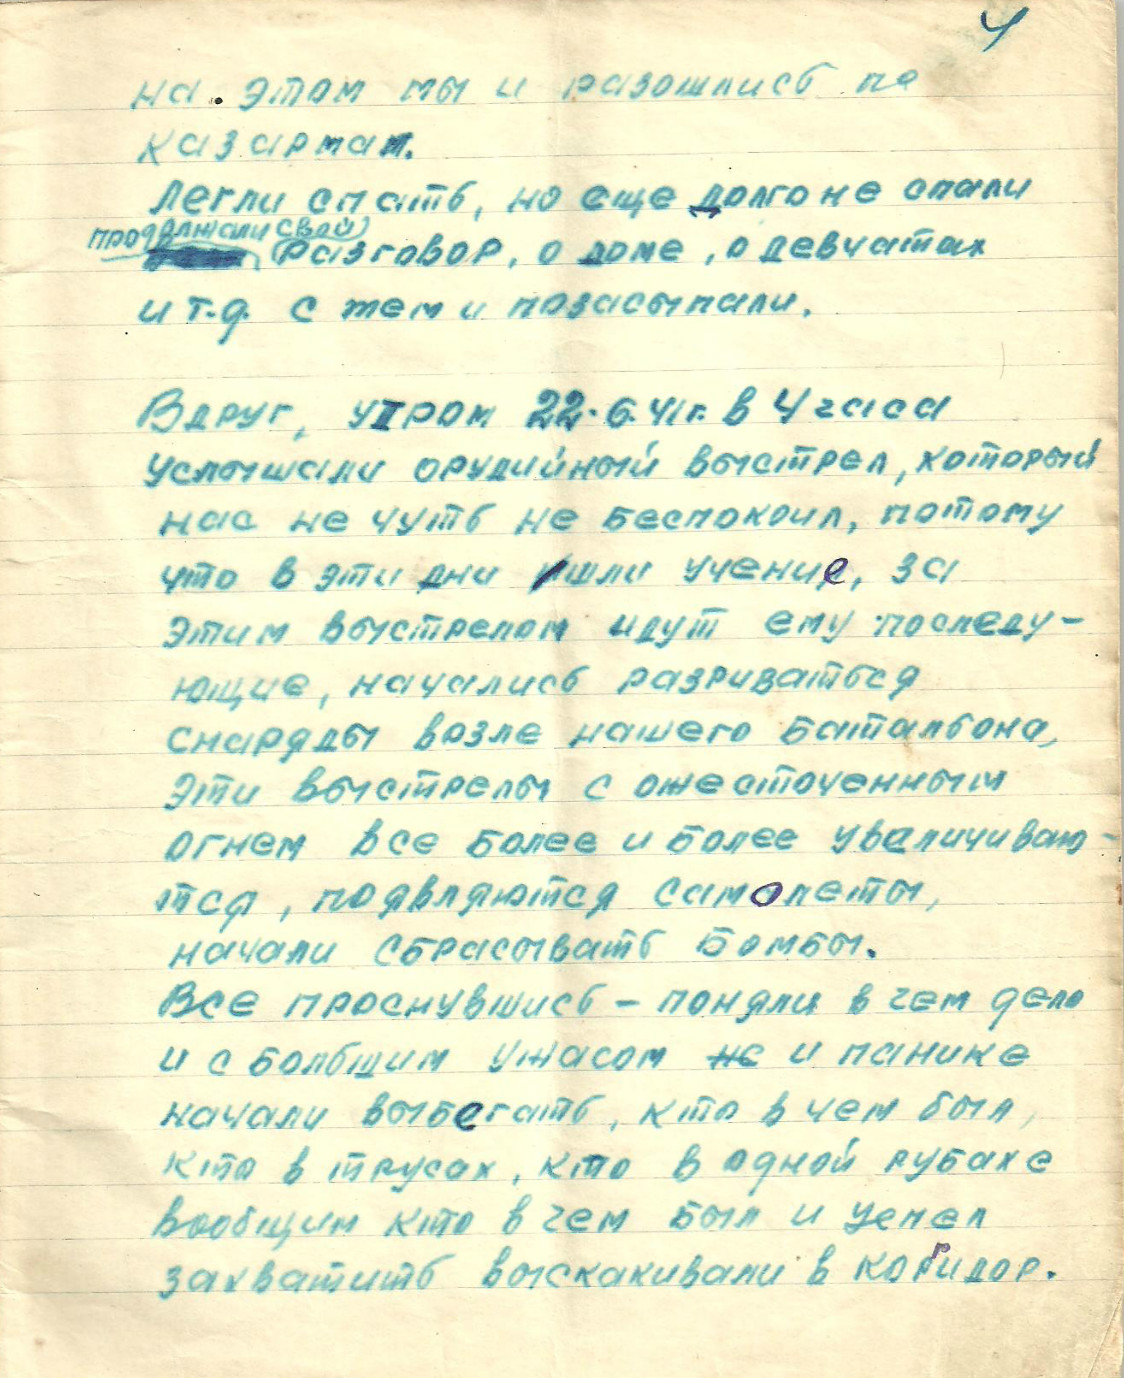 4
на этом мы и разошлись по
казармам.
Легли спать, но еще долго не спали
продолжали свой
разговор, о доме, о девчатах
и т.д. с тем и позасыпали.
Вдруг, утром 22.6.41г. в 4 часа
услышали орудийный выстрел, который
нас не чуть не беспокоил, потому
что в эти дни шли учение, за
этим выстрелом идут ему последу-
ющие, начались разриваться
снаряды возле нашего батальона,
эти выстрелы с ожесточенным
огнем все более и более увеличиваю-
тся, появляются самолеты,
начали сбрасывать бомбы.
Все проснувшись - поняли в чем дело
и с большим ужасом не и панике
начали выбегать, кто в чем был,
кто в трусах, кто в одной рубахе
вообщим кто в чем был и успел
захватить выскакивали в коридор.